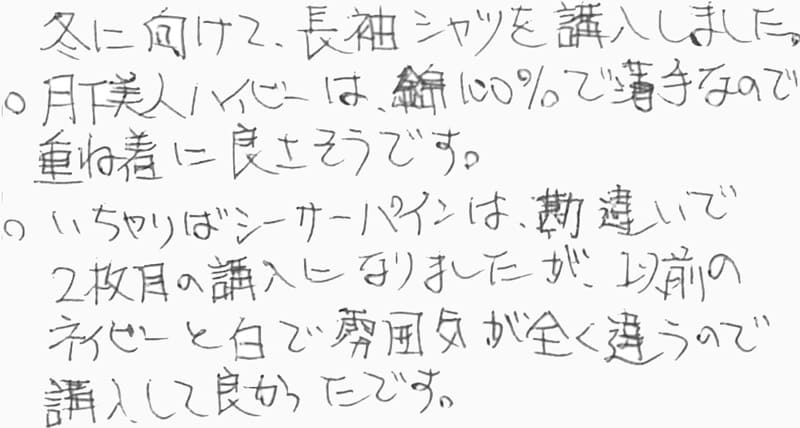 冬に向けて、長袖シャツを講入しました。
○月下美人ハイビーは、綿100%で薄手なので
重ね着に良さそうです。
○いちゃりばシーサーパインは、勘違いで
2枚目の講入になりましたが、以前の
ネイビーと白で雰囲気が全く違うので
講入して良かったです。